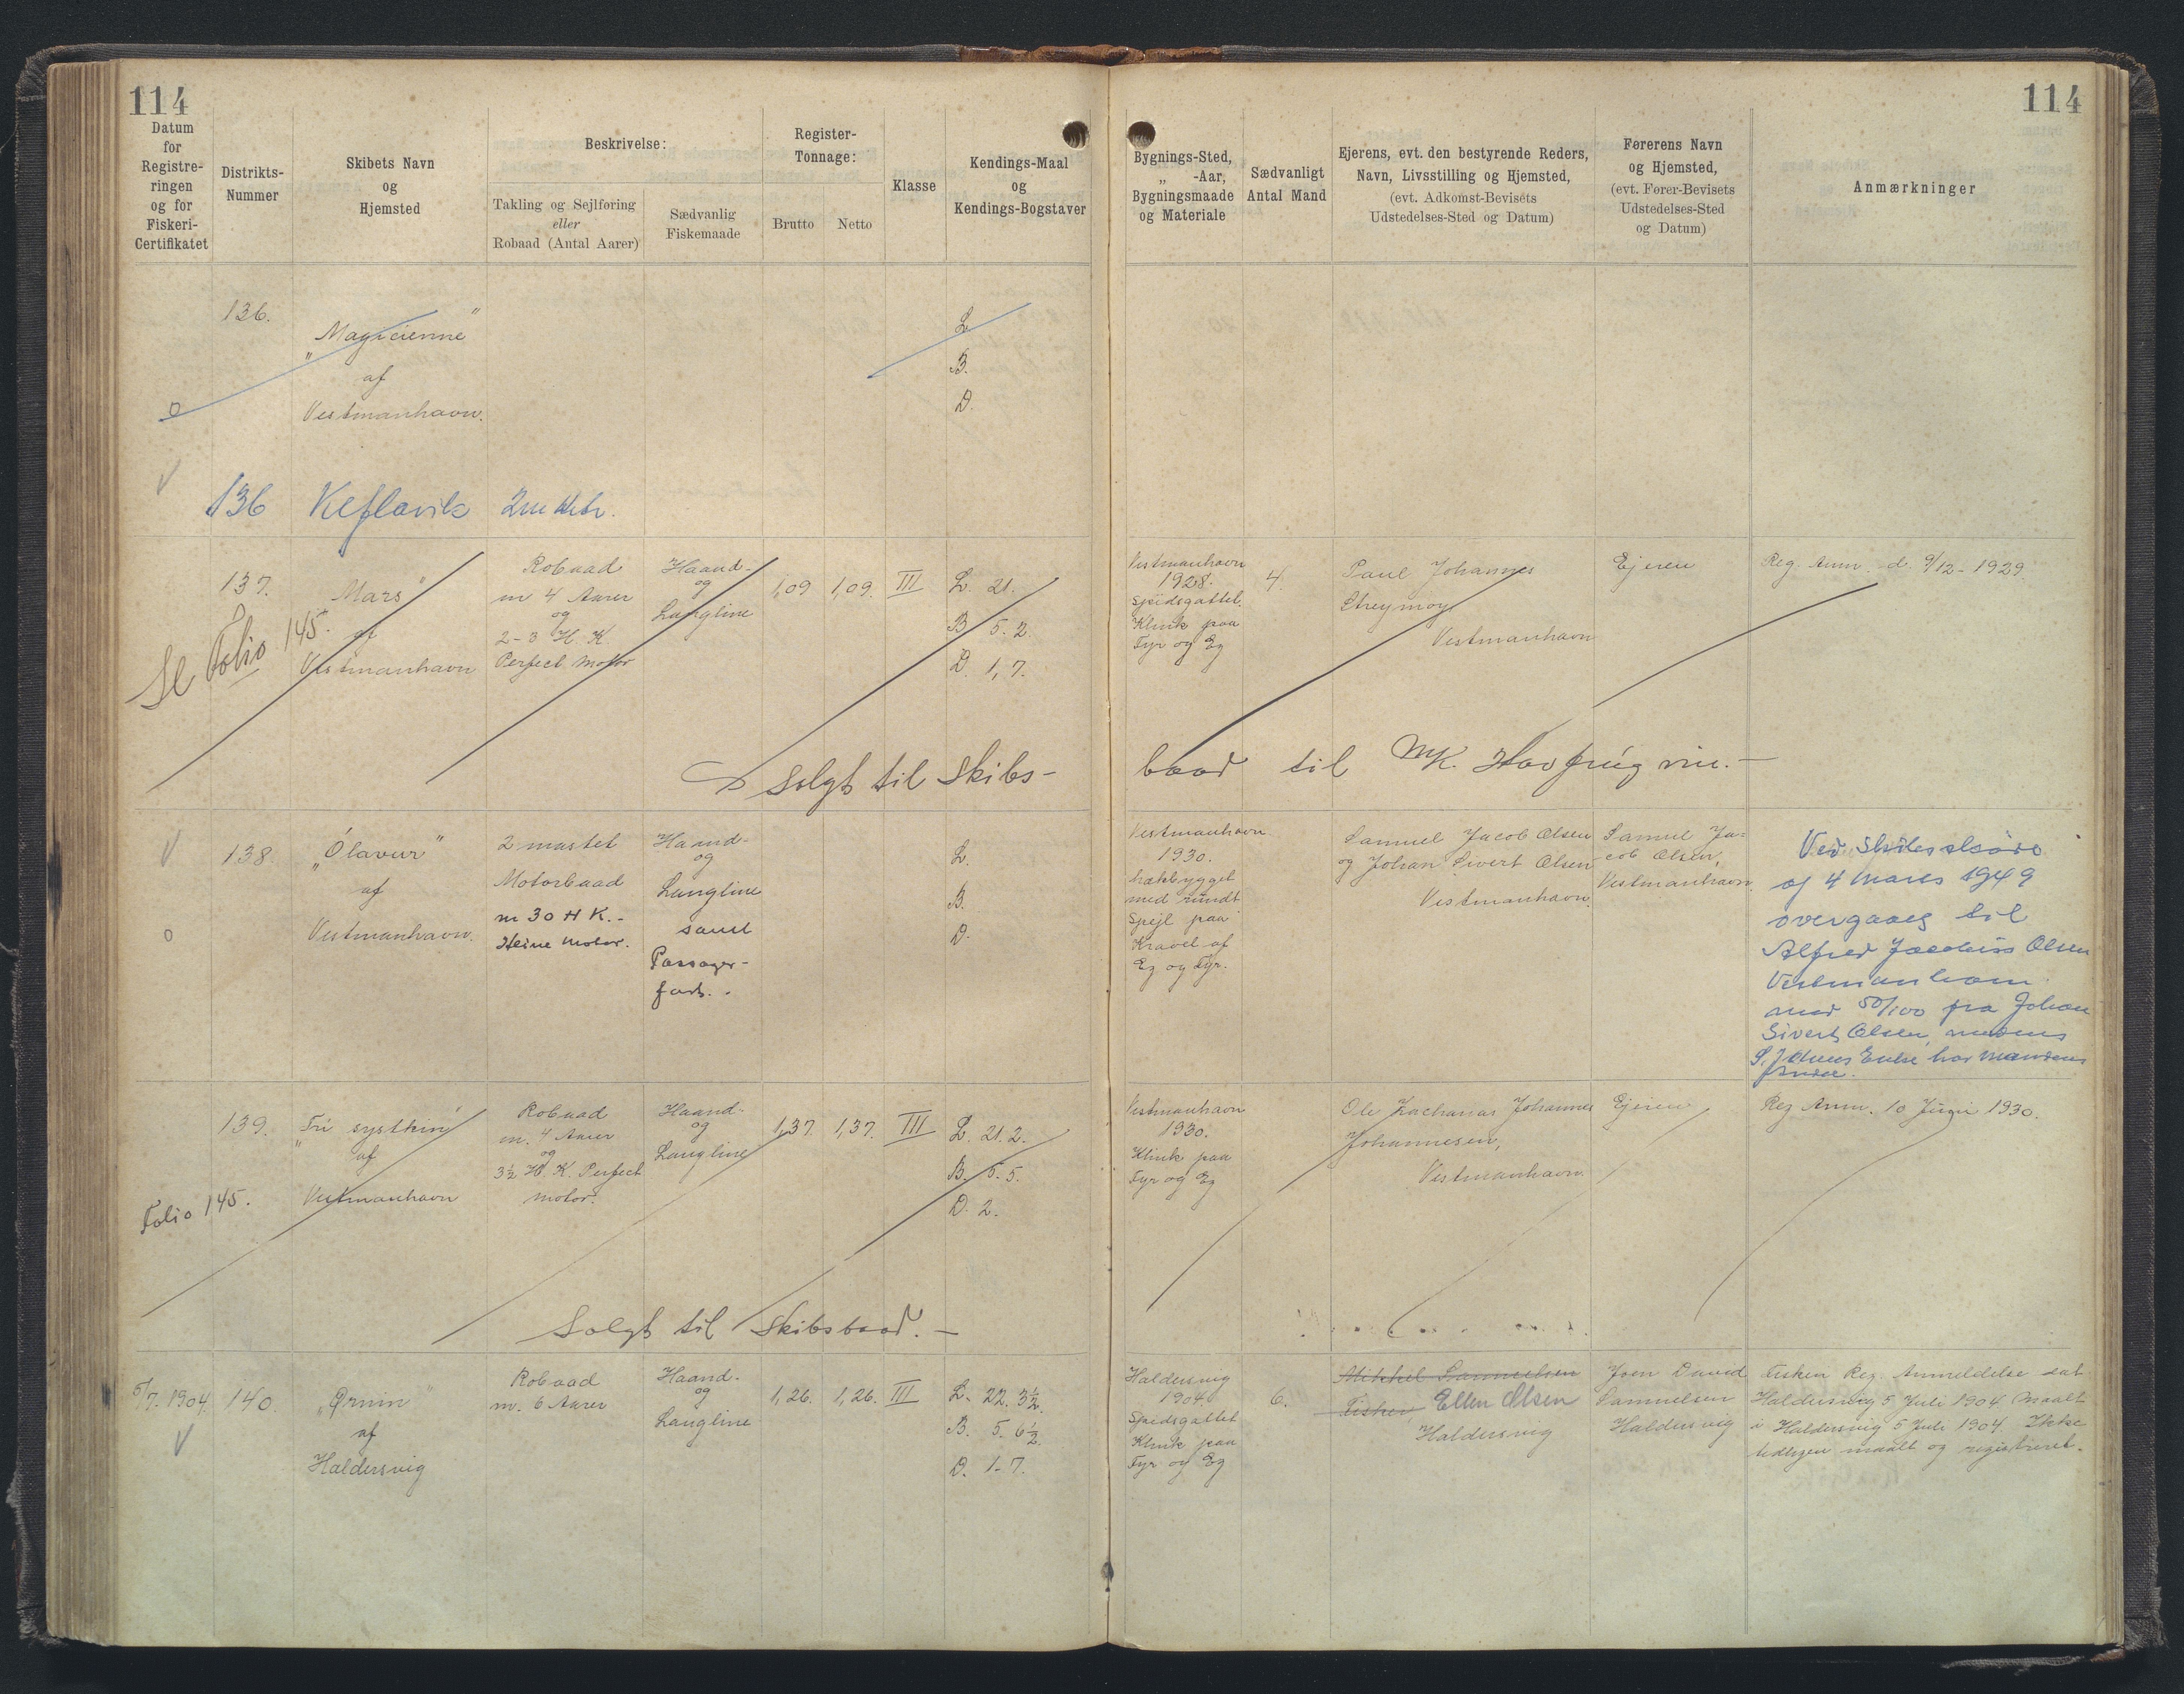 114
114
Datum
for
Registre-
ringen
og for
Fiskeri-
Certifikatet
Distrikts-
Nummer
Skibets Navn
og
Hjemsted
Beskrivelse:
Takling og Sejlføring
eller
Robaad (Antal Aarer)
Sædvanlig
Fiskemaade
Register-
Tonnage:
Brutto
Netto
Klasse
Kendings-Maal
og
Kendings-Bogstaver
Bygnings-Sted,
„ -Aar,
Bygningsmaade
og Materiale
Sædvanligt
Antal Mand
Ejerens, evt. den bestyrende Reders,
Navn, Livsstilling og Hjemsted,
(evt. Adkomst-Beviséts
Udstedelses-Sted og Datum)
Førerens Navn
og Hjemsted,
(evt. Fører-Bevisets
Udstedelses-Sted
og Datum)
Anmærkninger
136.
„Magicienne"
af
Vestmanhavn.
L.
B.
D.
136 Keflavik
137.
Se Folio 145.
„Mars"
af
Vestmanhavn
Robaad
m 4 Aarer
og
2-3 H. K.
Perfect Motor
Haand-
og
Langline
1,09
1,09.
III
L. 21.
B. 5. 2.
D. 1, 7.
Vestmanhavn
1928.
Spidsgattet.
Klink paa
Fyr og Eg
4.
Paul Johannes
Streymoy
Vestmanhavn
Ejeren
Reg. Anm. d. 9/12 - 1929
Solgt til Skibs-
baad til MK. Havfrúgvin. -
138.
„Ólavur"
af
Vestmanhavn.
2 mastet
Motorbaad
m 30 H K. -
Heine Motor.
Haand-
og
Langline
samt
Passager-
fart. -
L.
B.
D.
Vestmanhavn
1930.
hækbygget
med rundt
Spejl paa
Kravel af
Eg og Fyr.
Samuel Jacob Olsen
og Johan Sivert Olsen
Vestmanhavn.
Samuel Ja-
cob Olsen,
Vestmanhavn.
Ved Skibsskøde
af 4 Marts 1949
overgaaet til
Alfred Jacobis Olsen
Vestmanhavn
med 50/100 fra Johan
Sivert Olsen, medens
Enke har Mandens
139.
Folio 145.
„Trí systkin"
af
Vestmanhavn
Robaad
m. 4 Aarer
og
3½ H. K. Perfect
Motor.
Haand-
og
Langline
1,37
1,37.
III
L. 21. 2.
B. 5. 5.
D. 2.
Vestmanhavn
1930.
Klink paa
Fyr og Eg
Ole Zacharias Johannes
Johannesen,
Vestmanhavn.
Ejeren
Reg Anm. 10 Juni 1930.
Solgt til Skibsbaad. -
5/7. 1904.
140.
„Ørnin"
af
Haldersvig
Robaad
m. 6 Aarer
Haand-
og
Langline
1,26.
1,26.
III
L. 22. 3½.
B. 5. 6½.
D. 1-7.
Haldersvig
1904.
Spidsgattet
Klink paa
Fyr og Eg
6.
Mikkel Samuelsen
Fisker, Ellen Olsen
Haldersvig
Joen David
Samuelsen
Haldersvig
Fisken Reg. Anmeldelse dat
Haldersvig 5 Juli 1904 Maalt
i Haldersvig 5 Juli 1904. Ikke
tidligere maalt og registreret.